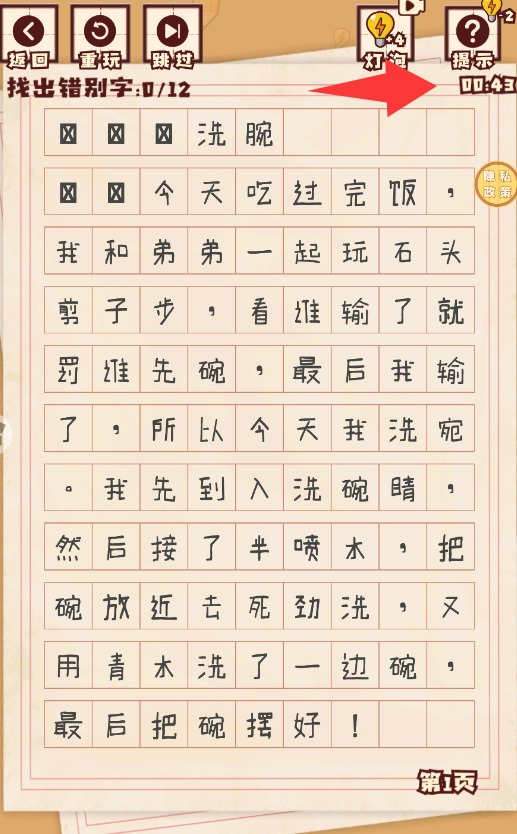 返回 重玩 跳过 +4 灯泡 -2 提示
找出错别字:0/12 00:43
洗腕
隐私政策
今天吃过完饭，
我和弟弟一起玩石头
剪子步，看谁输了就
罚谁先碗，最后我输
了，所以今天我洗宛
。我先到入洗碗睛，
然后接了半喷水，把
碗放近去死劲洗，又
用青水洗了一边碗，
最后把碗摆好！
第1页